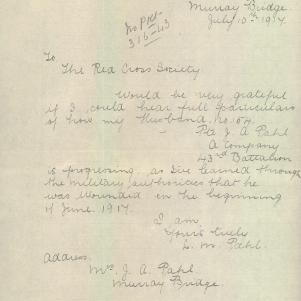 Murray Bridge.
July 10th 1917.
316-43
To
The Red Cross Society.
Would be very grateful
if I could hear full particulars
of how my Husband, no 54
Pte J. A. Pahl
A Company
43rd Battalion
is progresing, as I've learned through
the military authorities that he
was wounded in the beginning
of June. 1917.
I am
Yours truly
L. M. Pahl.
Address.
Mrs J. A. Pahl.
Murray Bridge.